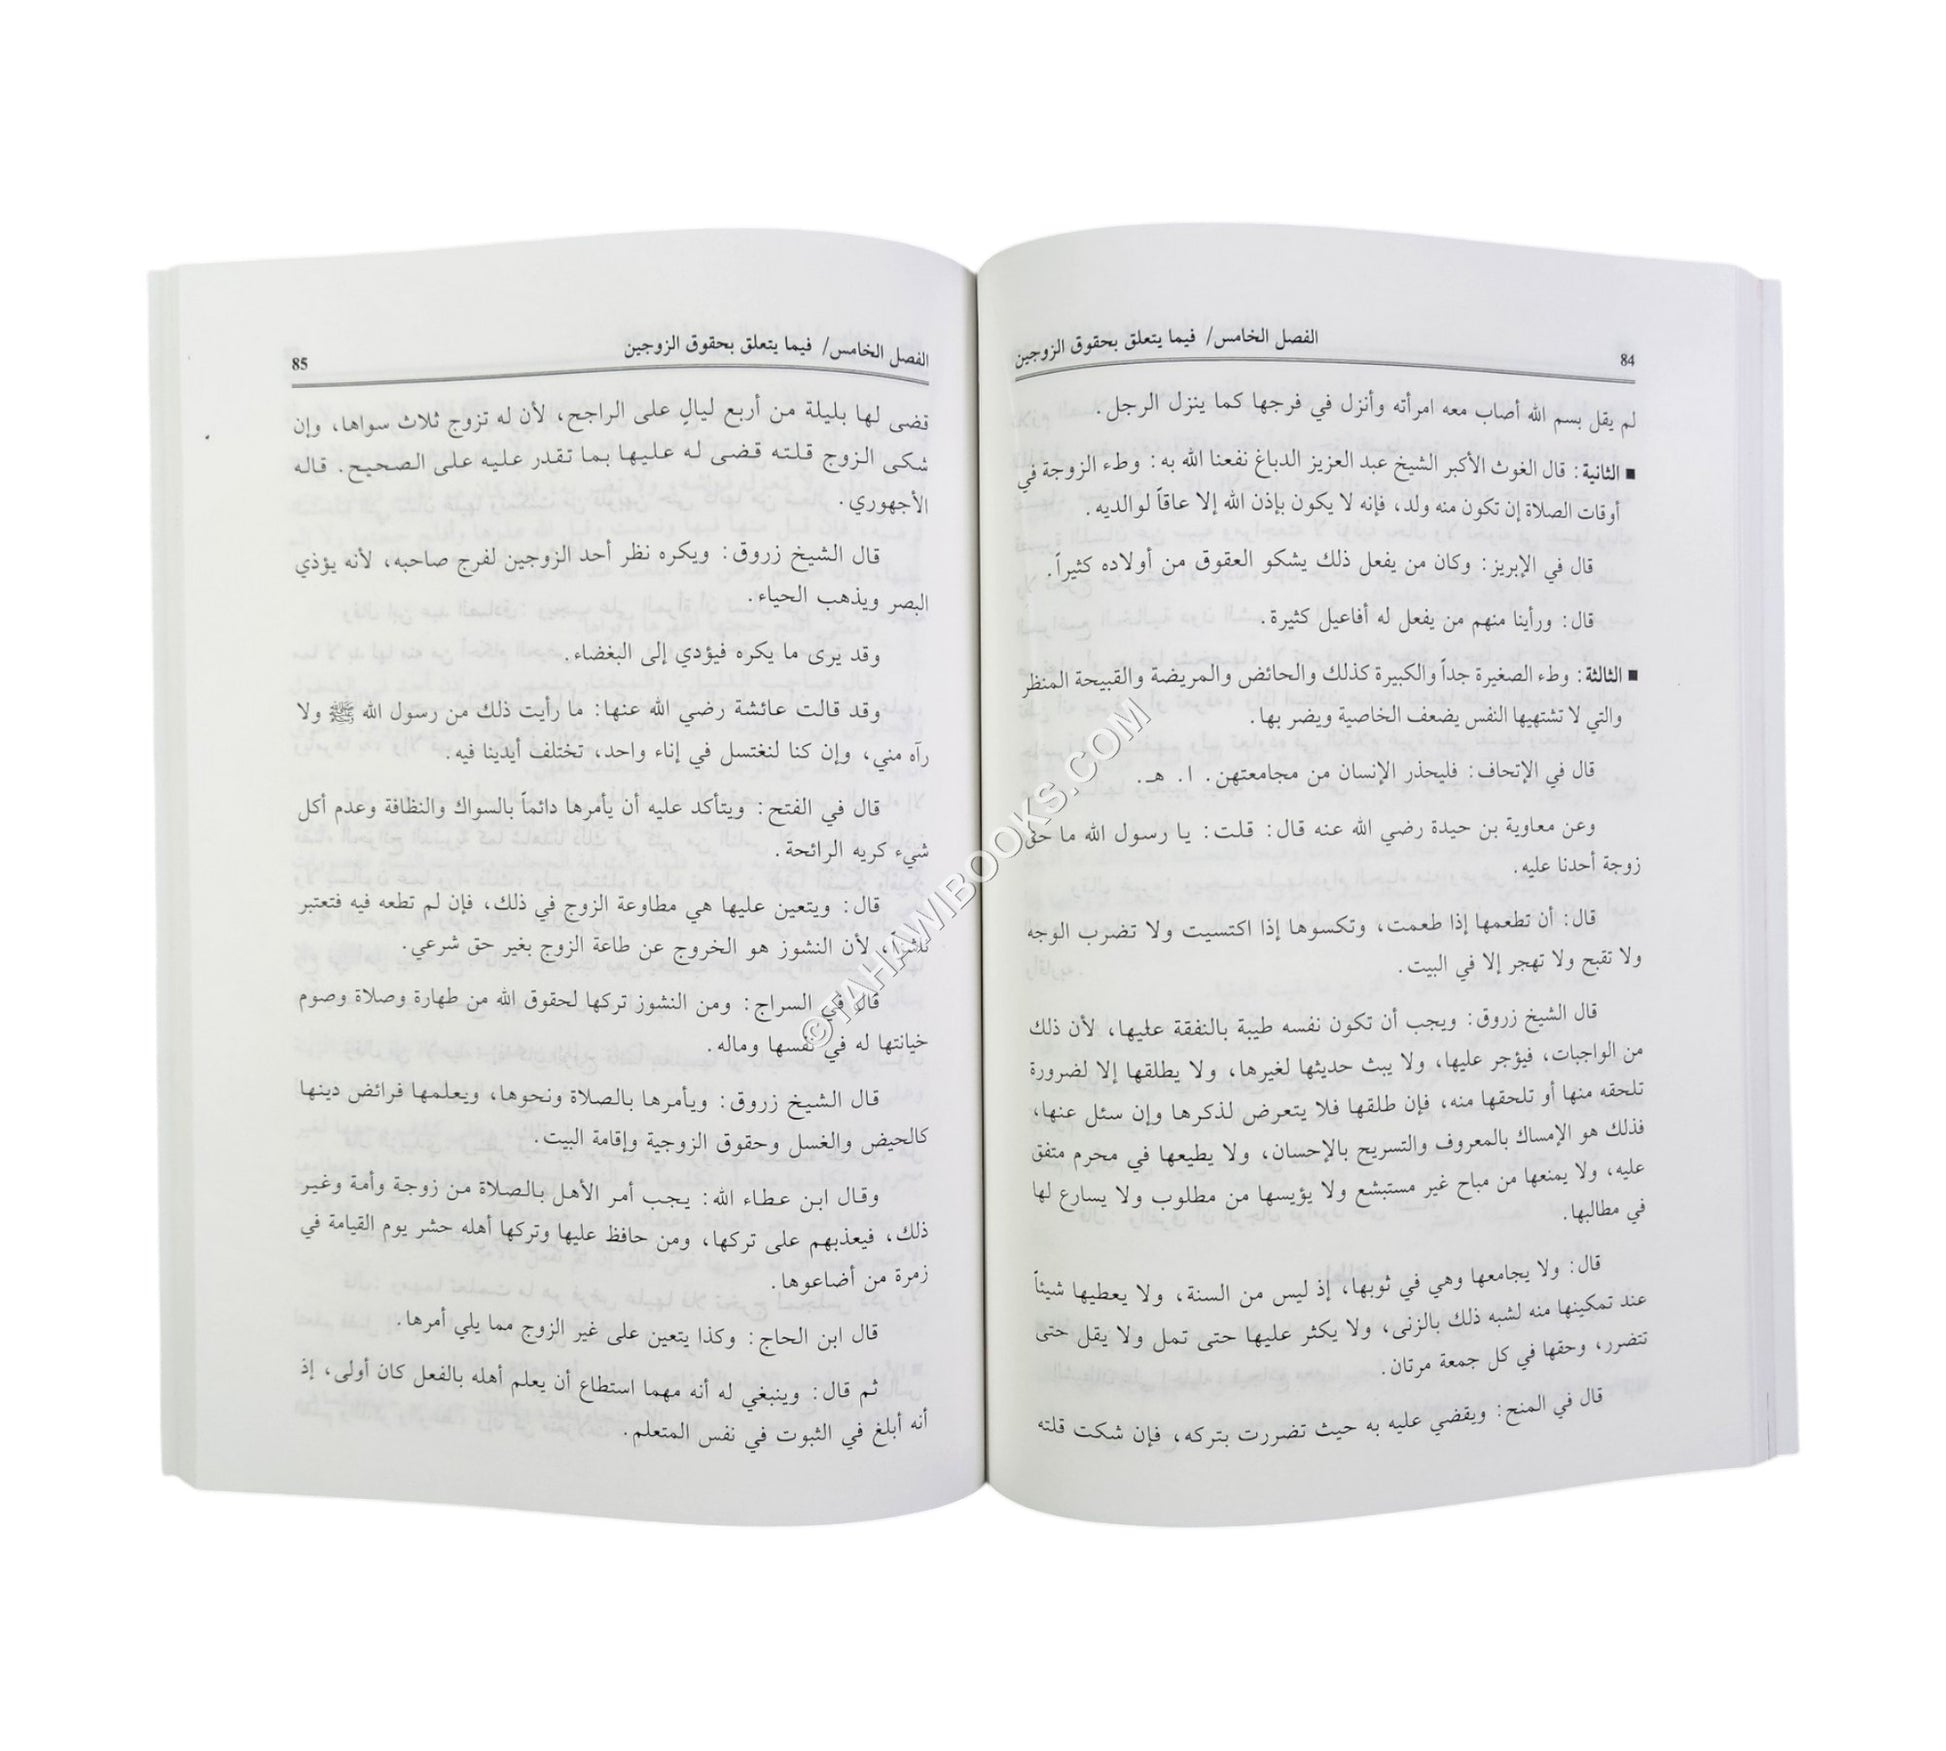 84
الفصل الخامس/ فيما يتعلق بحقوق الزوجين
لم يقل بسم الله أصاب معه امرأته وأنزل في فرجها كما ينزل الرجل.
■ الثانية: قال الغوث الأكبر الشيخ عبد العزيز الدباغ نفعنا الله به: وطء الزوجة في
أوقات الصلاة إن تكون منه ولد، فإنه لا يكون بإذن الله إلا عاقاً لوالديه.
قال في الإبريز: وكان من يفعل ذلك يشكو العقوق من أولاده كثيراً.
قال: ورأينا منهم من يفعل له أفاعيل كثيرة.
■ الثالثة: وطء الصغيرة جداً والكبيرة كذلك والحائض والمريضة والقبيحة المنظر
والتي لا تشتهيها النفس يضعف الخاصية ويضر بها.
قال في الإتحاف: فليحذر الإنسان من مجامعتهن. ا. هـ.
وعن معاوية بن حيدة رضي الله عنه قال: قلت: يا رسول الله ما حق
زوجة أحدنا عليه.
قال: أن تطعمها إذا طعمت، وتكسوها إذا اكتسيت ولا تضرب الوجه
ولا تقبح ولا تهجر إلا في البيت.
قال الشيخ زروق: ويجب أن تكون نفسه طيبة بالنفقة عليها، لأن ذلك
من الواجبات، فيؤجر عليها، ولا يبث حديثها لغيرها، ولا يطلقها إلا لضرورة
تلحقه منها أو تلحقها منه، فإن طلقها فلا يتعرض لذكرها وإن سئل عنها،
فذلك هو الإمساك بالمعروف والتسريح بالإحسان، ولا يطيعها في محرم متفق
عليه، ولا يمنعها من مباح غير مستبشع ولا يؤيسها من مطلوب ولا يسارع لها
في مطالبها.
قال: ولا يجامعها وهي في ثوبها، إذ ليس من السنة، ولا يعطيها شيئاً
عند تمكينها منه لشبه ذلك بالزنى، ولا يكثر عليها حتى تمل ولا يقل حتى
تتضرر، وحقها في كل جمعة مرتان.
قال في المنح: ويقضي عليه به حيث تضررت بتركه، فإن شكت قلته
الفصل الخامس/ فيما يتعلق بحقوق الزوجين
85
قضى لها بليلة من أربع ليالٍ على الراجح، لأن له تزوج ثلاث سواها، وإن
شكى الزوج قلته قضى له عليها بما تقدر عليه على الصحيح. قاله
الأجهوري.
قال الشيخ زروق: ويكره نظر أحد الزوجين لفرج صاحبه، لأنه يؤذي
البصر ويذهب الحياء.
وقد يرى ما يكره فيؤدي إلى البغضاء.
وقد قالت عائشة رضي الله عنها: ما رأيت ذلك من رسول الله ﷺ ولا
رآه مني، وإن كنا لنغتسل في إناء واحد، تختلف أيدينا فيه.
قال في الفتح: ويتأكد عليه أن يأمرها دائماً بالسواك والنظافة وعدم أكل
شيء كريه الرائحة.
قال: ويتعين عليها هي مطاوعة الزوج في ذلك، فإن لم تطعه فيه فتعتبر
ناشزاً، لأن النشوز هو الخروج عن طاعة الزوج بغير حق شرعي.
قال في السراج: ومن النشوز تركها لحقوق الله من طهارة وصلاة وصوم
خيانتها له في نفسها وماله.
قال الشيخ زروق: ويأمرها بالصلاة ونحوها، ويعلمها فرائض دينها
كالحيض والغسل وحقوق الزوجية وإقامة البيت.
وقال ابن عطاء الله: يجب أمر الأهل بالصلاة من زوجة وأمة وغير
ذلك، فيعذبهم على تركها، ومن حافظ عليها وتركها أهله حشر يوم القيامة في
زمرة من أضاعوها.
قال ابن الحاج: وكذا يتعين على غير الزوج مما يلي أمرها.
ثم قال: وينبغي له أنه مهما استطاع أن يعلم أهله بالفعل كان أولى، إذ
أنه أبلغ في الثبوت في نفس المتعلم.
©TAHAWIBOOKS.COM